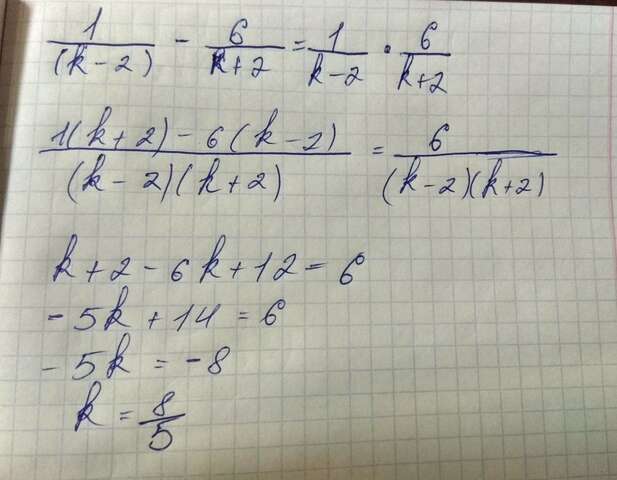 1/(k-2) - 6/k+2 = 1/k-2 · 6/k+2
1(k+2)-6(k-2)/(k-2)(k+2) = 6/(k-2)(k+2)
k+2-6k+12=6
-5k+14=6
-5k=-8
k=8/5